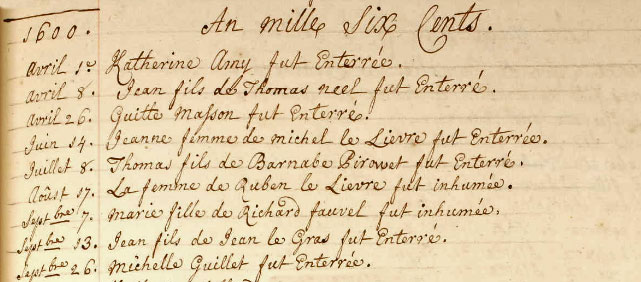 1600. An mille Six Cents.
Avril 1.e Katherine Amy fut Enterrée.
Avril 8. Jean fils de Thomas neel fut Enterré.
Avril 26. Guitte Masson fut Enterré.
Juin 14. Jeanne femme de michel le Lievre fut Enterrée.
Juillet 8. Thomas fils de Barnabe Pirowet fut Enterré.
Aoûst 17. La femme de Ruben le Lievre fut inhumée.
Septbre 7. Marie fille de Richard fauvel fut inhumée.
Septbre 13. Jean fils de Jean le Gras fut Enterré.
Septbre 26. Michelle Guillet fut Enterrée.